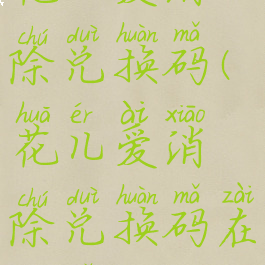 chú duì huàn mǎ
除兑换码(
huā ér ài xiāo
花儿爱消
chú duì huàn mǎ zài
除兑换码在